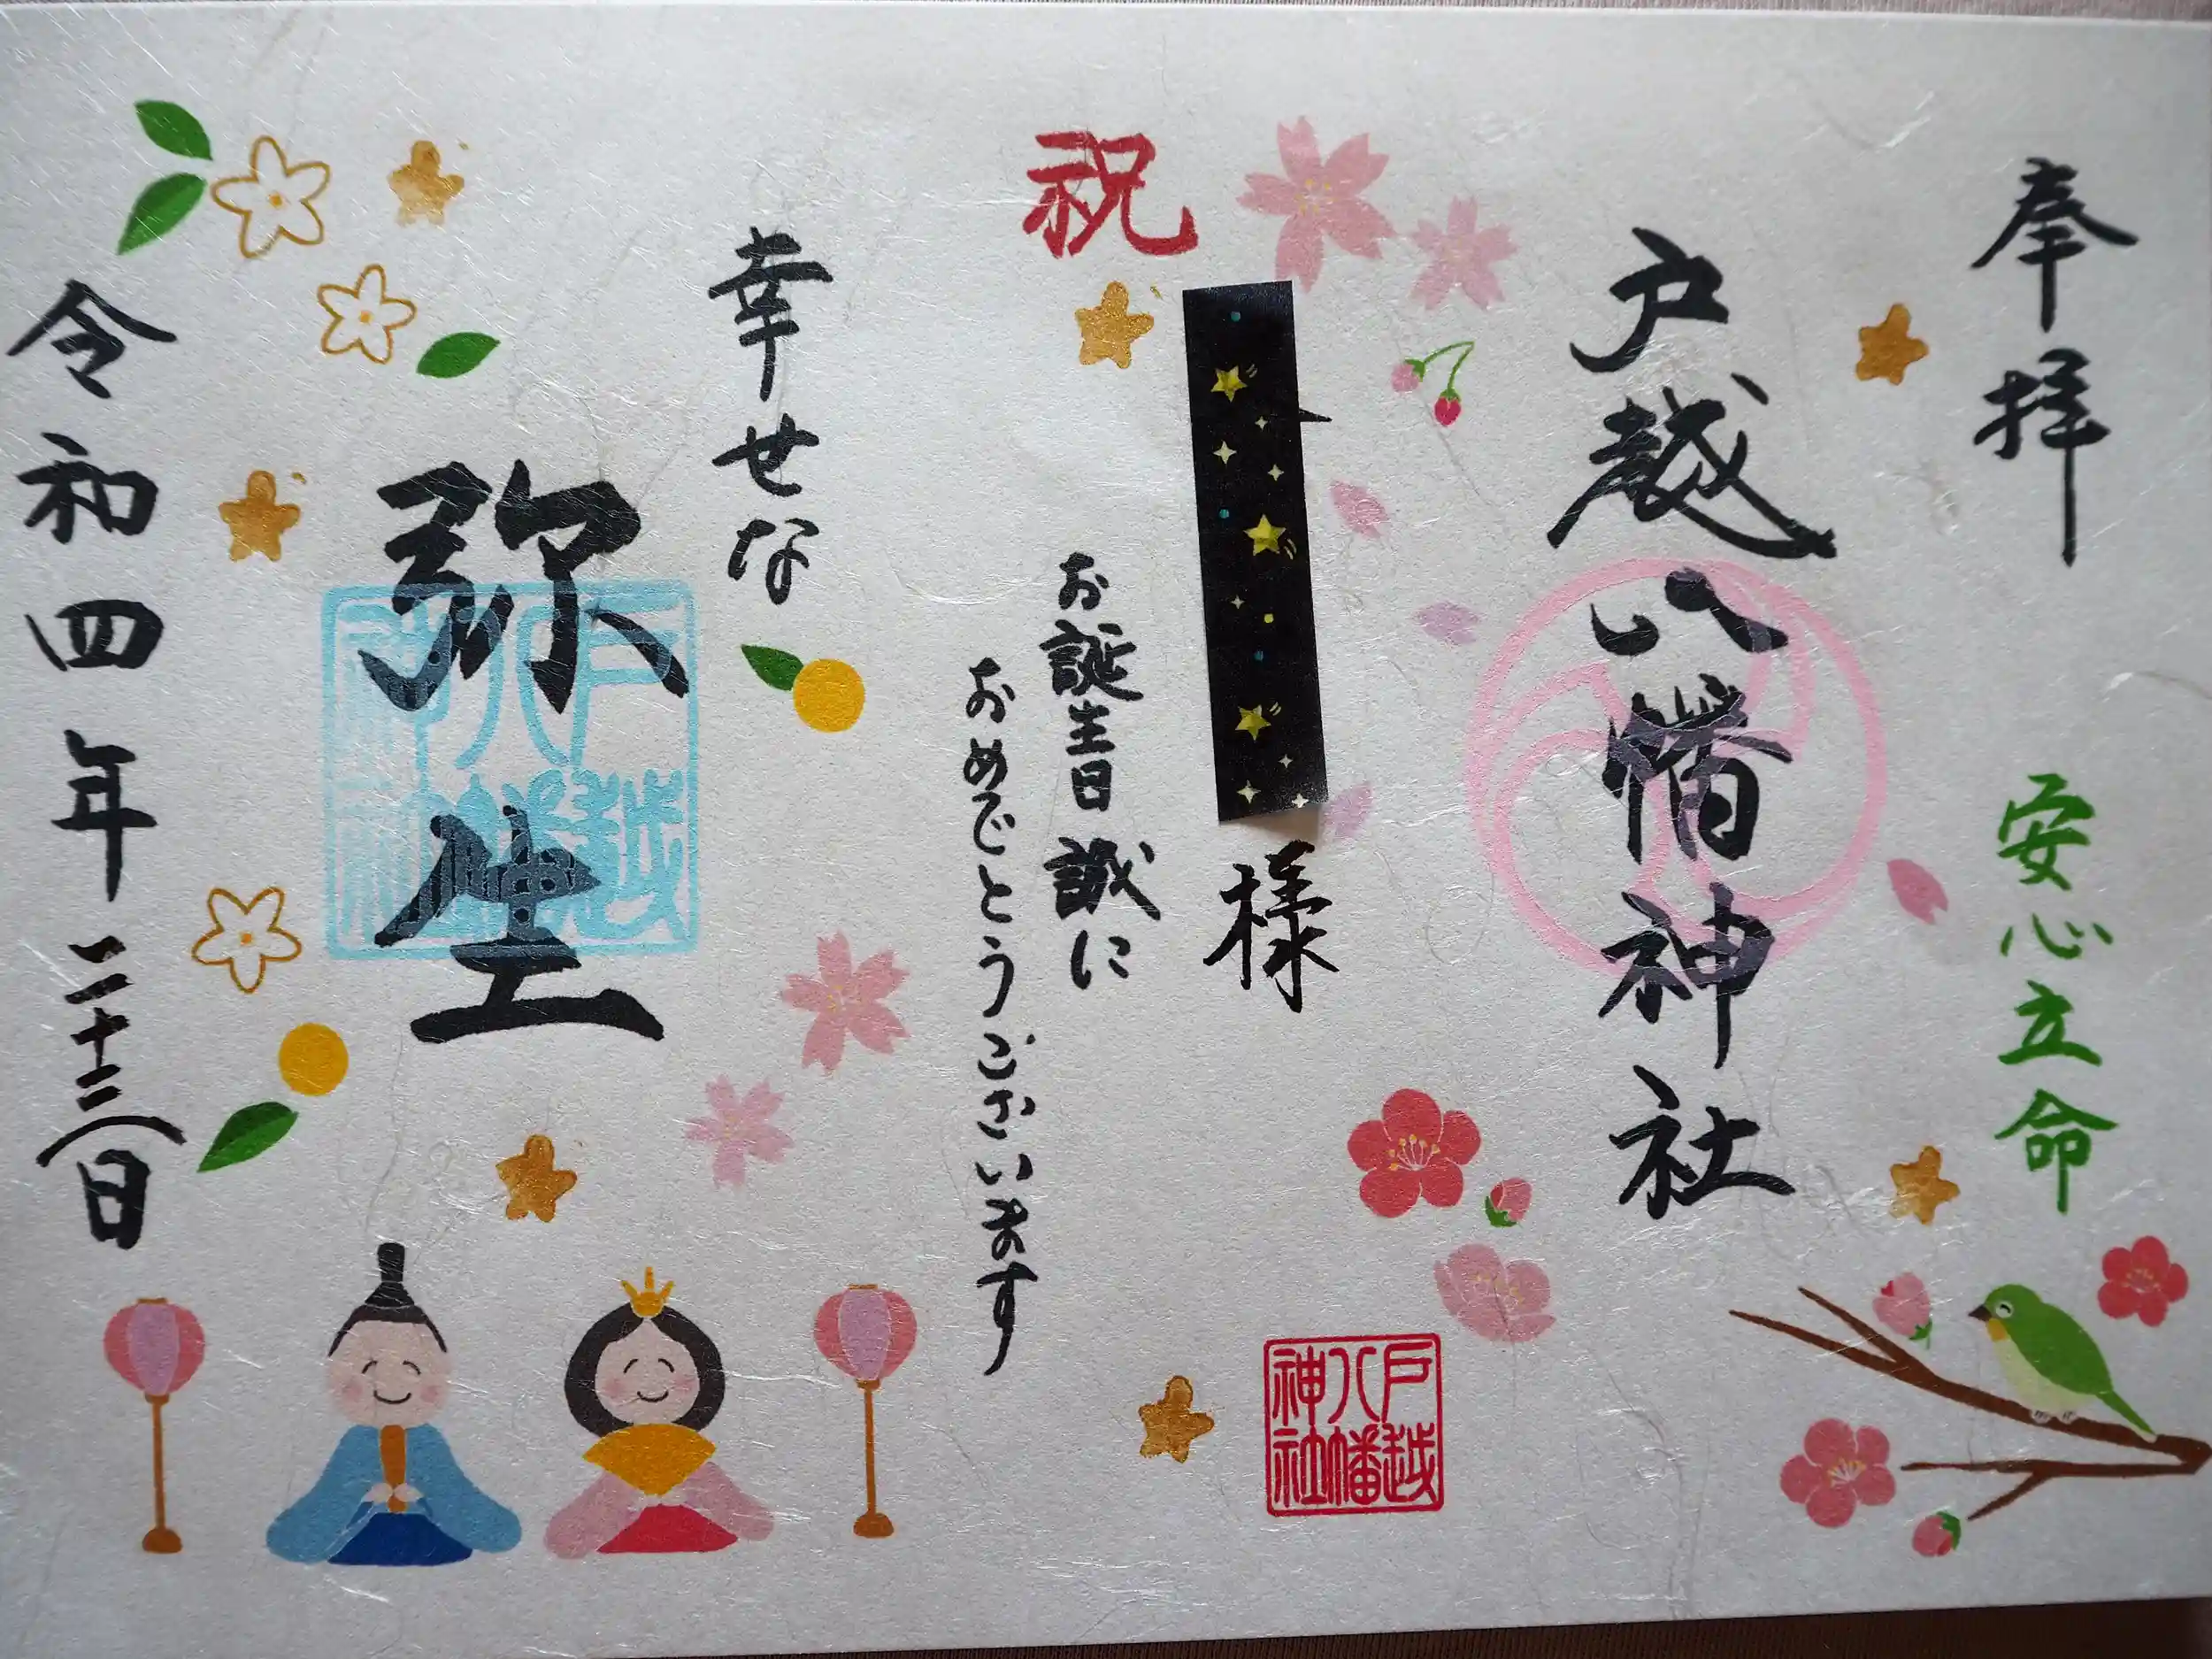 奉拝
安心立命
戸越八幡神社
祝
様
お誕生日誠に
おめでとうございます
戸越八幡神社
幸せな
弥生
戸越八幡神社
令和四年三月二十三日